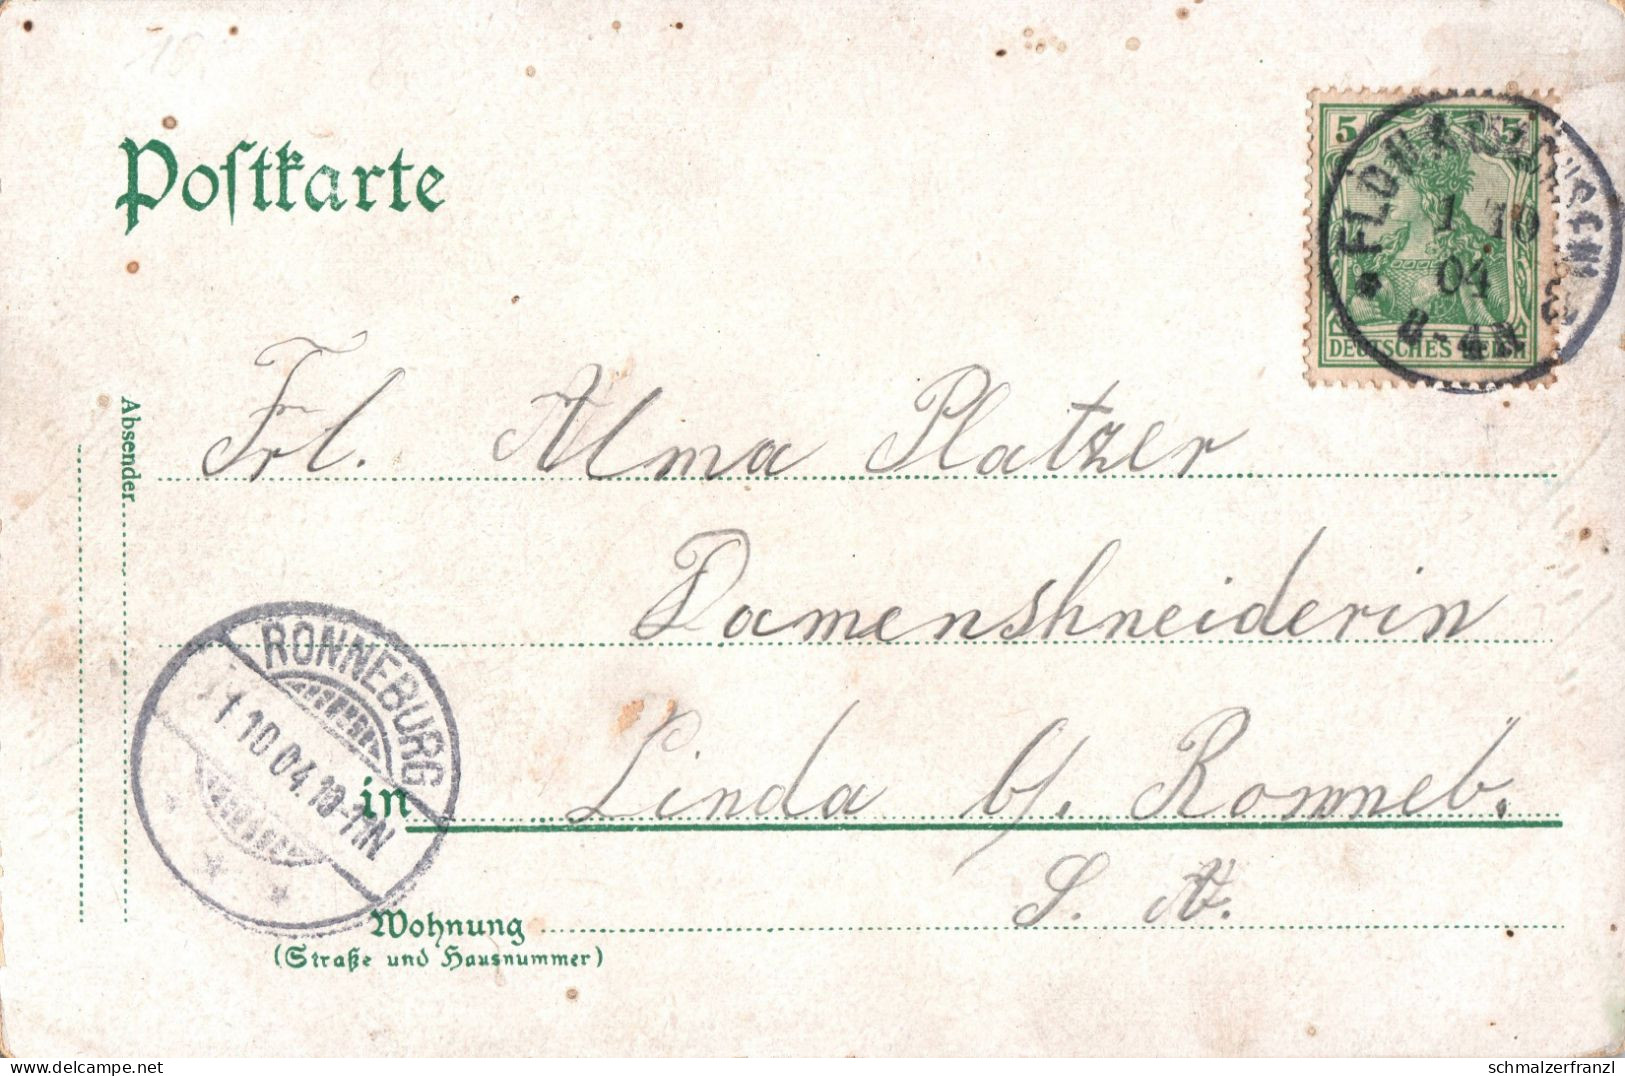 Postkarte
5 5
1 10
04
DEUTSCHES REICH
Absender
Frl. Alma Platzer
Damenshneiderin
RONNEBURG
1.10.04.10-11N
in Linda b/. Ronneb.
S. A.
Wohnung
(Straße und Hausnummer)
schmalzerfranzl